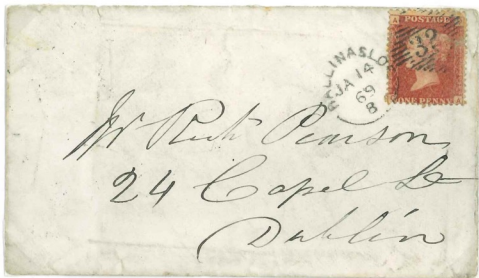 POSTAGE
A
32
ONE PENNY
BALLINASLOE
JA 14
69
8
Mr Richd Pearson
24 Capel St
Dublin